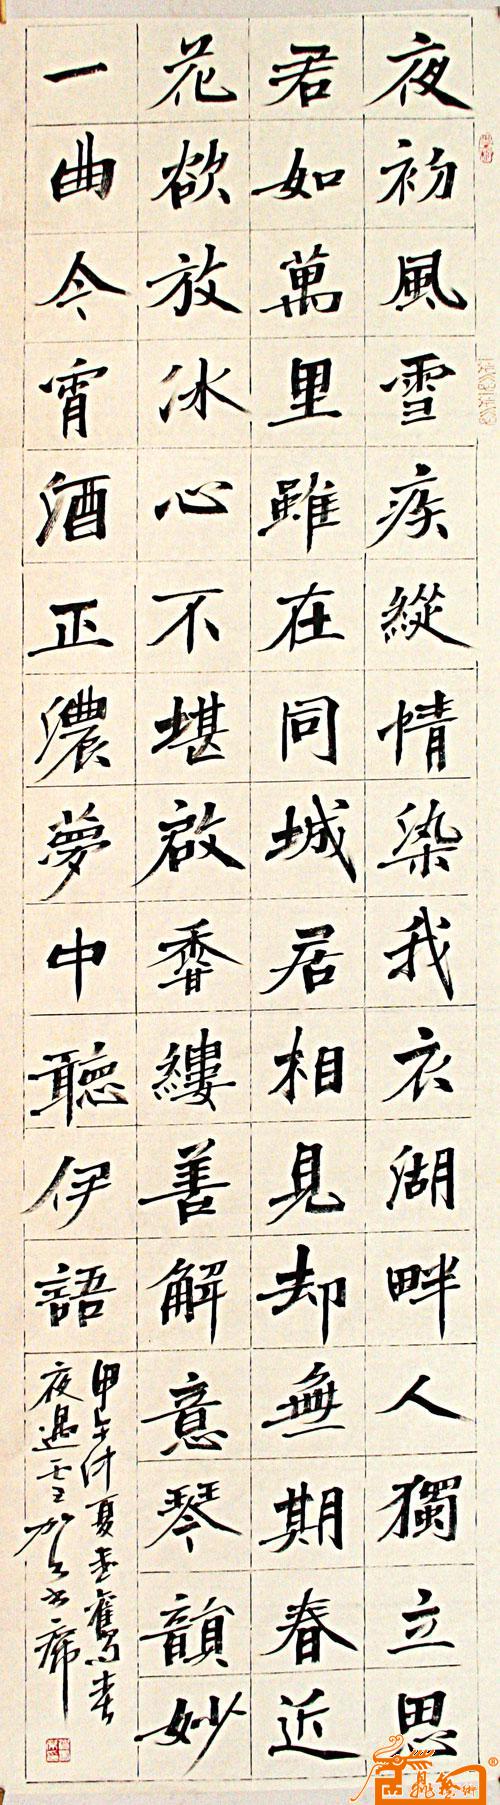 夜初風雪疾縱情染我衣湖畔人獨立思
君如萬里雖在同城居相見却無期春近
花欲放冰心不堪啟香縷善解意琴韻妙
一曲今宵酒正濃夢中聽伊語
甲午仲夏書舊
夜